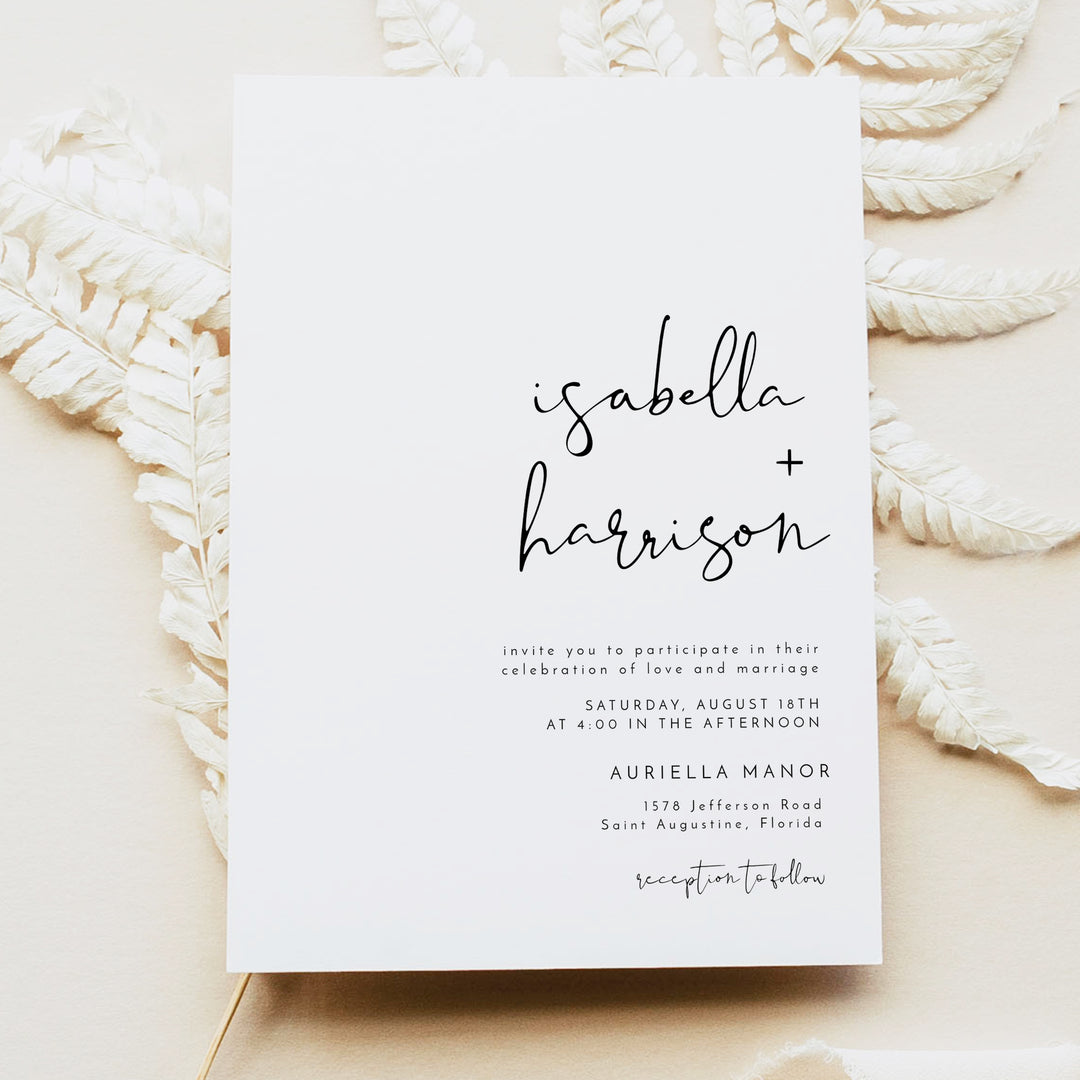 isabella
+
harrison
invite you to participate in their
celebration of love and marriage
SATURDAY, AUGUST 18TH
AT 4:00 IN THE AFTERNOON
AURIELLA MANOR
1578 Jefferson Road
Saint Augustine, Florida
reception to follow